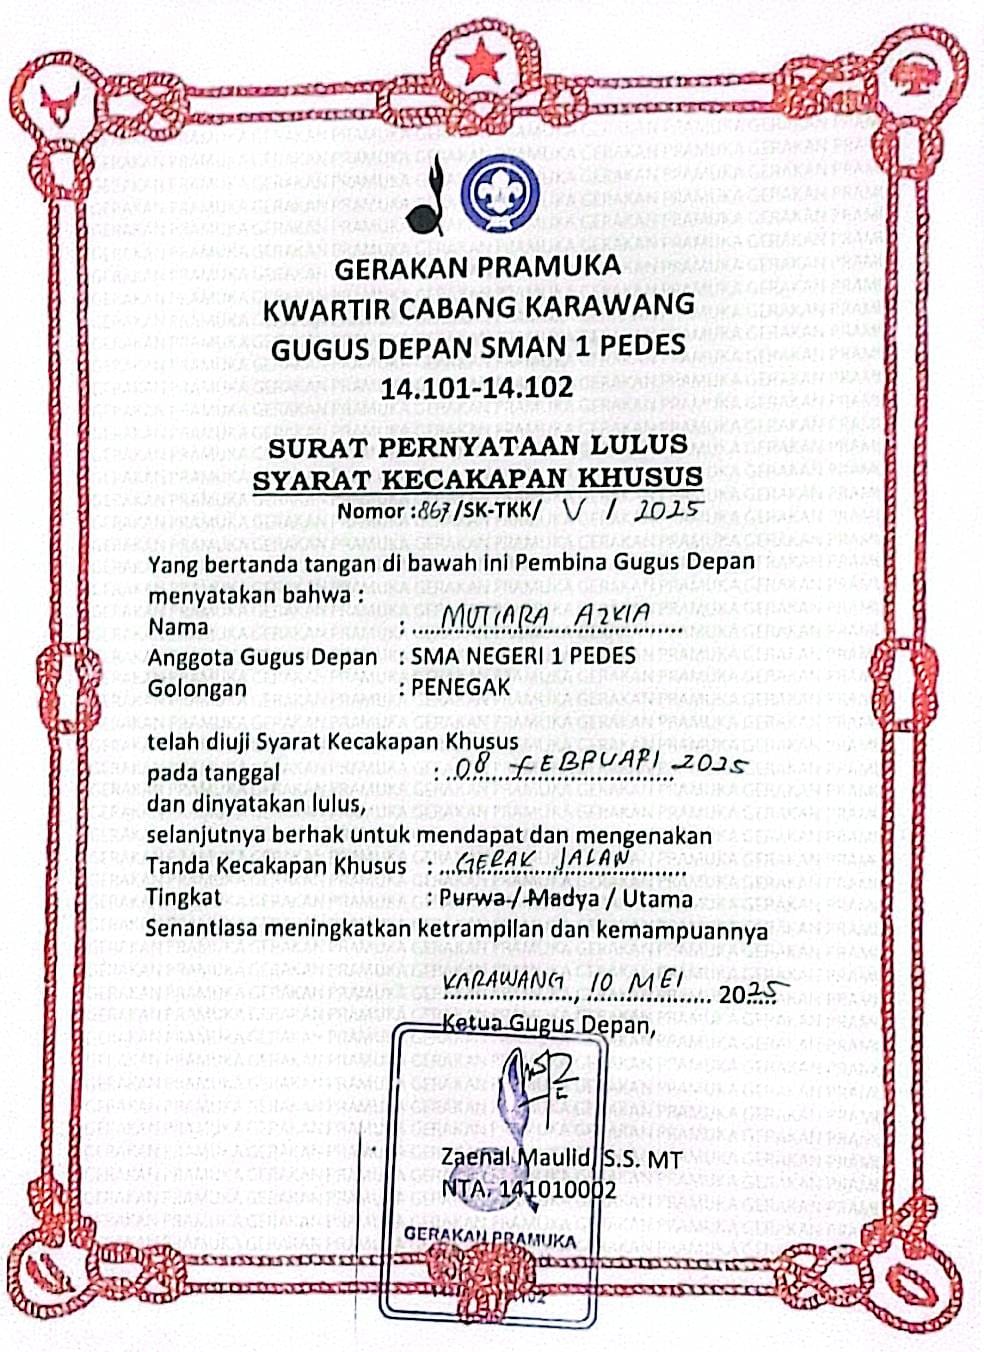 GERAKAN PRAMUKA
KWARTIR CABANG KARAWANG
GUGUS DEPAN SMAN 1 PEDES
14.101-14.102
SURAT PERNYATAAN LULUS
SYARAT KECAKAPAN KHUSUS
Nomor : 867/SK-TKK/ V / 2025
Yang bertanda tangan di bawah ini Pembina Gugus Depan
menyatakan bahwa :
Nama : MUTIARA AZKIA
Anggota Gugus Depan : SMA NEGERI 1 PEDES
Golongan : PENEGAK
telah diuji Syarat Kecakapan Khusus
pada tanggal : 08 FEBRUARI 2025
dan dinyatakan lulus,
selanjutnya berhak untuk mendapat dan mengenakan
Tanda Kecakapan Khusus : GERAK JALAN
Tingkat : Purwa / Madya / Utama
Senantiasa meningkatkan ketrampilan dan kemampuannya
KARAWANG, 10 MEI 2025
Ketua Gugus Depan,
Zaenal Maulid, S.S. MT
NTA. 141010002
GERAKAN PRAMUKA